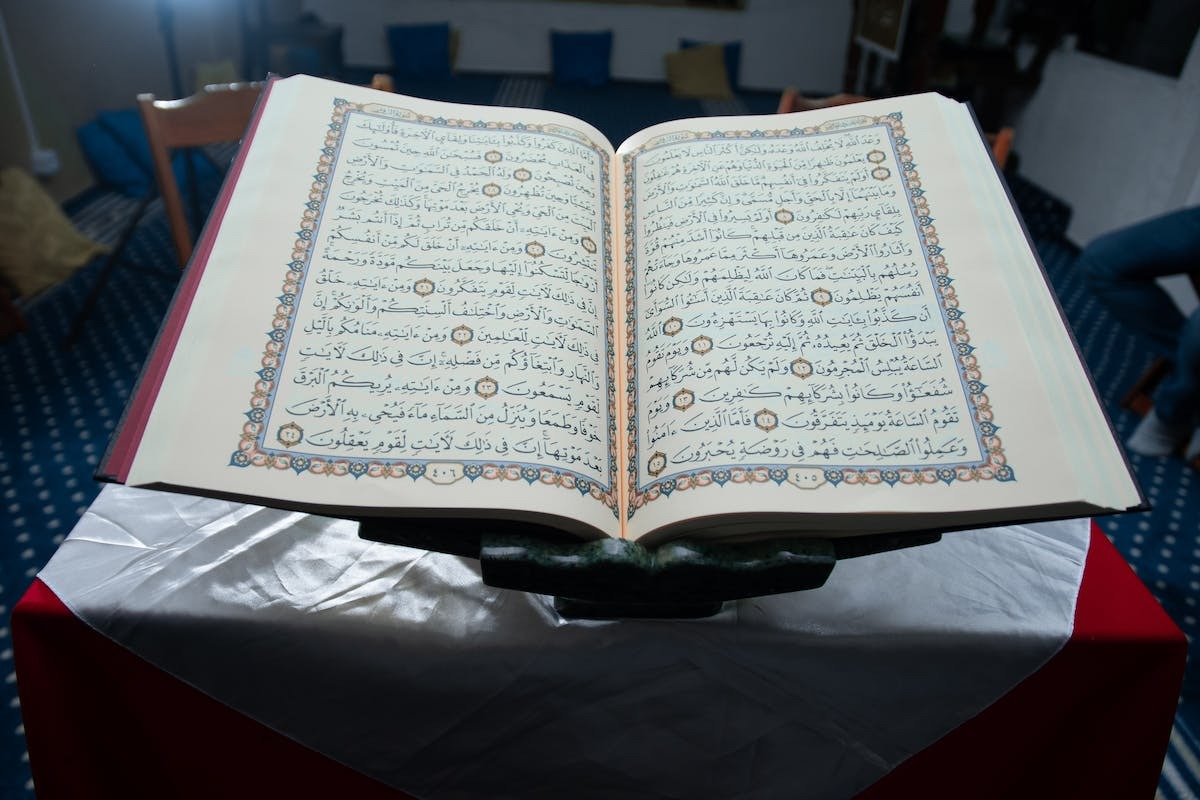 الجزء الحادي والعشرون سورة الروم
وَعْدَ ٱللَّهِ لَا يُخْلِفُ ٱللَّهُ وَعْدَهُۥ وَلَٰكِنَّ أَكْثَرَ ٱلنَّاسِ لَا يَعْلَمُونَ ٦
يَعْلَمُونَ ظَٰهِرًا مِّنَ ٱلْحَيَوٰةِ ٱلدُّنْيَا وَهُمْ عَنِ ٱلْأَخِرَةِ هُمْ غَٰفِلُونَ ٧
أَوَلَمْ يَتَفَكَّرُوا۟ فِىٓ أَنفُسِهِم مَّا خَلَقَ ٱللَّهُ ٱلسَّمَٰوَٰتِ وَٱلْأَرْضَ
وَمَا بَيْنَهُمَآ إِلَّا بِٱلْحَقِّ وَأَجَلٍ مُّسَمًّى وَإِنَّ كَثِيرًا مِّنَ ٱلنَّاسِ
بِلِقَآئِ رَبِّهِمْ لَكَٰفِرُونَ ٨ أَوَلَمْ يَسِيرُوا۟ فِى ٱلْأَرْضِ فَيَنظُرُوا۟
كَيْفَ كَانَ عَٰقِبَةُ ٱلَّذِينَ مِن قَبْلِهِمْ كَانُوٓا۟ أَشَدَّ مِنْهُمْ قُوَّةً
وَأَثَارُوا۟ ٱلْأَرْضَ وَعَمَرُوهَآ أَكْثَرَ مِمَّا عَمَرُوهَا وَجَآءَتْهُمْ
رُسُلُهُم بِٱلْبَيِّنَٰتِ فَمَا كَانَ ٱللَّهُ لِيَظْلِمَهُمْ وَلَٰكِن كَانُوٓا۟
أَنفُسَهُمْ يَظْلِمُونَ ٩ ثُمَّ كَانَ عَٰقِبَةَ ٱلَّذِينَ أَسَٰٓـُٔوا۟ ٱلسُّوٓأَىٰٓ
أَن كَذَّبُوا۟ بِـَٔايَٰتِ ٱللَّهِ وَكَانُوا۟ بِهَا يَسْتَهْزِءُونَ ١٠ ٱللَّهُ
يَبْدَؤُا۟ ٱلْخَلْقَ ثُمَّ يُعِيدُهُۥ ثُمَّ إِلَيْهِ تُرْجَعُونَ ١١ وَيَوْمَ تَقُومُ
ٱلسَّاعَةُ يُبْلِسُ ٱلْمُجْرِمُونَ ١٢ وَلَمْ يَكُن لَّهُم مِّن شُرَكَآئِهِمْ
شُفَعَٰٓؤُا۟ وَكَانُوا۟ بِشُرَكَآئِهِمْ كَٰفِرِينَ ١٣ وَيَوْمَ
تَقُومُ ٱلسَّاعَةُ يَوْمَئِذٍ يَتَفَرَّقُونَ ١٤ فَأَمَّا ٱلَّذِينَ ءَامَنُوا۟
وَعَمِلُوا۟ ٱلصَّٰلِحَٰتِ فَهُمْ فِى رَوْضَةٍ يُحْبَرُونَ ١٥
٤٠٥
سورة الروم
وَأَمَّا ٱلَّذِينَ كَفَرُوا۟ وَكَذَّبُوا۟ بِـَٔايَٰتِنَا وَلِقَآئِ ٱلْأَخِرَةِ فَأُو۟لَٰٓئِكَ
فِى ٱلْعَذَابِ مُحْضَرُونَ ١٦ فَسُبْحَٰنَ ٱللَّهِ حِينَ تُمْسُونَ
وَحِينَ تُصْبِحُونَ ١٧ وَلَهُ ٱلْحَمْدُ فِى ٱلسَّمَٰوَٰتِ وَٱلْأَرْضِ
وَعَشِيًّا وَحِينَ تُظْهِرُونَ ١٨ يُخْرِجُ ٱلْحَىَّ مِنَ ٱلْمَيِّتِ وَيُخْرِجُ
ٱلْمَيِّتَ مِنَ ٱلْحَىِّ وَيُحْىِ ٱلْأَرْضَ بَعْدَ مَوْتِهَا وَكَذَٰلِكَ تُخْرَجُونَ
١٩ وَمِنْ ءَايَٰتِهِۦٓ أَنْ خَلَقَكُم مِّن تُرَابٍ ثُمَّ إِذَآ أَنتُم بَشَرٌ
تَنتَشِرُونَ ٢٠ وَمِنْ ءَايَٰتِهِۦٓ أَنْ خَلَقَ لَكُم مِّنْ أَنفُسِكُمْ
أَزْوَٰجًا لِّتَسْكُنُوٓا۟ إِلَيْهَا وَجَعَلَ بَيْنَكُم مَّوَدَّةً وَرَحْمَةً
إِنَّ فِى ذَٰلِكَ لَأَيَٰتٍ لِّقَوْمٍ يَتَفَكَّرُونَ ٢١ وَمِنْ ءَايَٰتِهِۦ خَلْقُ
ٱلسَّمَٰوَٰتِ وَٱلْأَرْضِ وَٱخْتِلَٰفُ أَلْسِنَتِكُمْ وَأَلْوَٰنِكُمْ إِنَّ
فِى ذَٰلِكَ لَأَيَٰتٍ لِّلْعَٰلِمِينَ ٢٢ وَمِنْ ءَايَٰتِهِۦ مَنَامُكُم بِٱلَّيْلِ
وَٱلنَّهَارِ وَٱبْتِغَآؤُكُم مِّن فَضْلِهِۦٓ إِنَّ فِى ذَٰلِكَ لَأَيَٰتٍ
لِّقَوْمٍ يَسْمَعُونَ ٢٣ وَمِنْ ءَايَٰتِهِۦ يُرِيكُمُ ٱلْبَرْقَ
خَوْفًا وَطَمَعًا وَيُنَزِّلُ مِنَ ٱلسَّمَآءِ مَآءً فَيُحْىِۦ بِهِ ٱلْأَرْضَ
بَعْدَ مَوْتِهَآ إِنَّ فِى ذَٰلِكَ لَأَيَٰتٍ لِّقَوْمٍ يَعْقِلُونَ ٢٤
٤٠٦